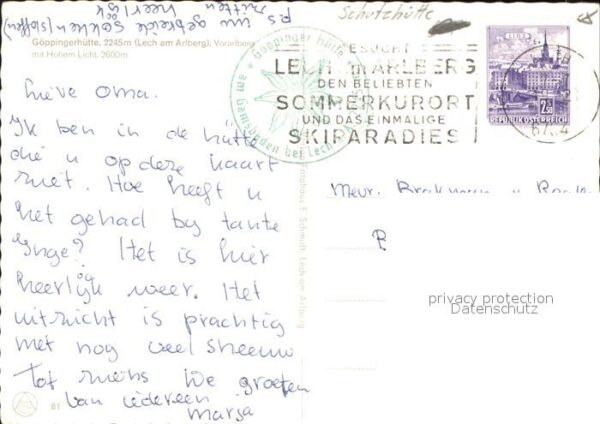 Schutzhütte
Göppingerhütte, 2245m (Lech am Arlberg), Vorarlberg
mit Hohem Licht, 2600m
Göppinger Hütte
am Gamsboden bei Lech
BESUCHT
LECH am ARLBERG
DEN BELIEBTEN
SOMMERKURORT
UND DAS EINMALIGE
SKIPARADIES
2.50
REPUBLIK ÖSTERREICH
Lieve Oma.
Ik ben in de hütte
die u op deze kaart
ziet. Hoe heeft u
het gehad by tante
Inge? Het is hier
heerlijk weer. Het
uitzicht is prachtig
met nog veel sneeuw
Tot ziens We groeten
van iedereen
Marja
Mevr.
privacy protection
Datenschutz
Fotohaus F. Schmidt, Lech am Arlberg
81